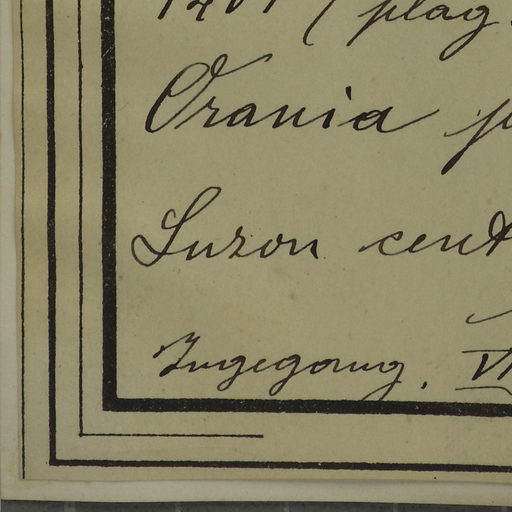 (plag.
Orania
Luzon cent
Ingegoung. VI